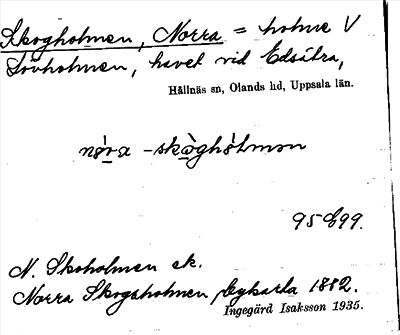 Skogholmen, Norra = holme V
Lövholmen, havet vid Edsätra,
Hållnäs sn, Olands hd, Uppsala län.
nø̀ra -skòghòlmən
95 E99.
N. Skoholmen ek.
Norra Skogsholmen, sykarta 1882.
Ingegärd Isaksson 1935.